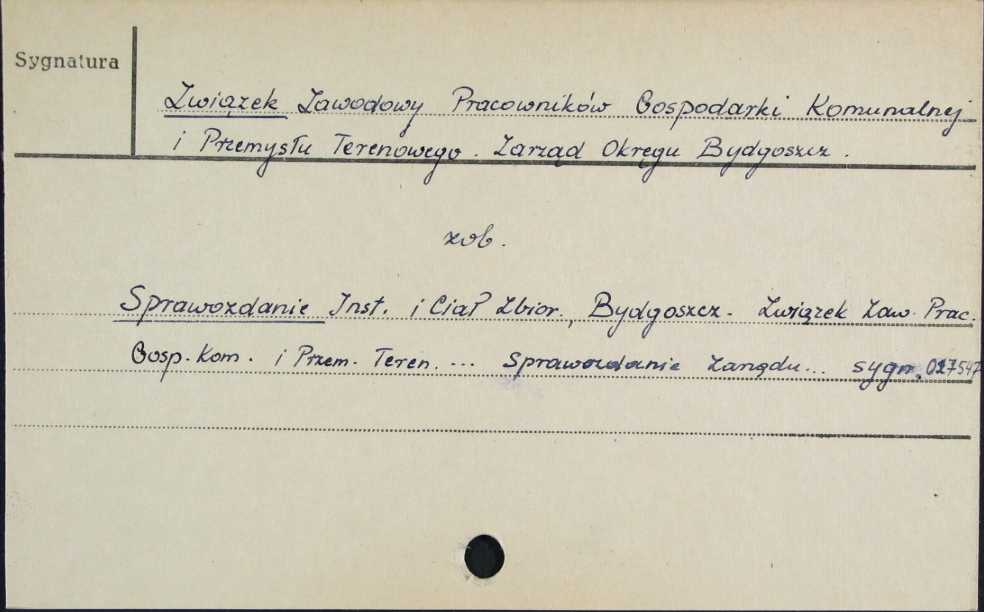 Sygnatura
Związek Zawodowy Pracowników Gospodarki Komunalnej
i Przemysłu Terenowego. Zarząd Okręgu Bydgoszcz.
zob.
Sprawozdanie Inst. i Ciał Zbior., Bydgoszcz. Związek Zaw. Prac.
Gosp. Kom. i Przem. Teren. ... Sprawozdanie Zarządu... sygn. 027547